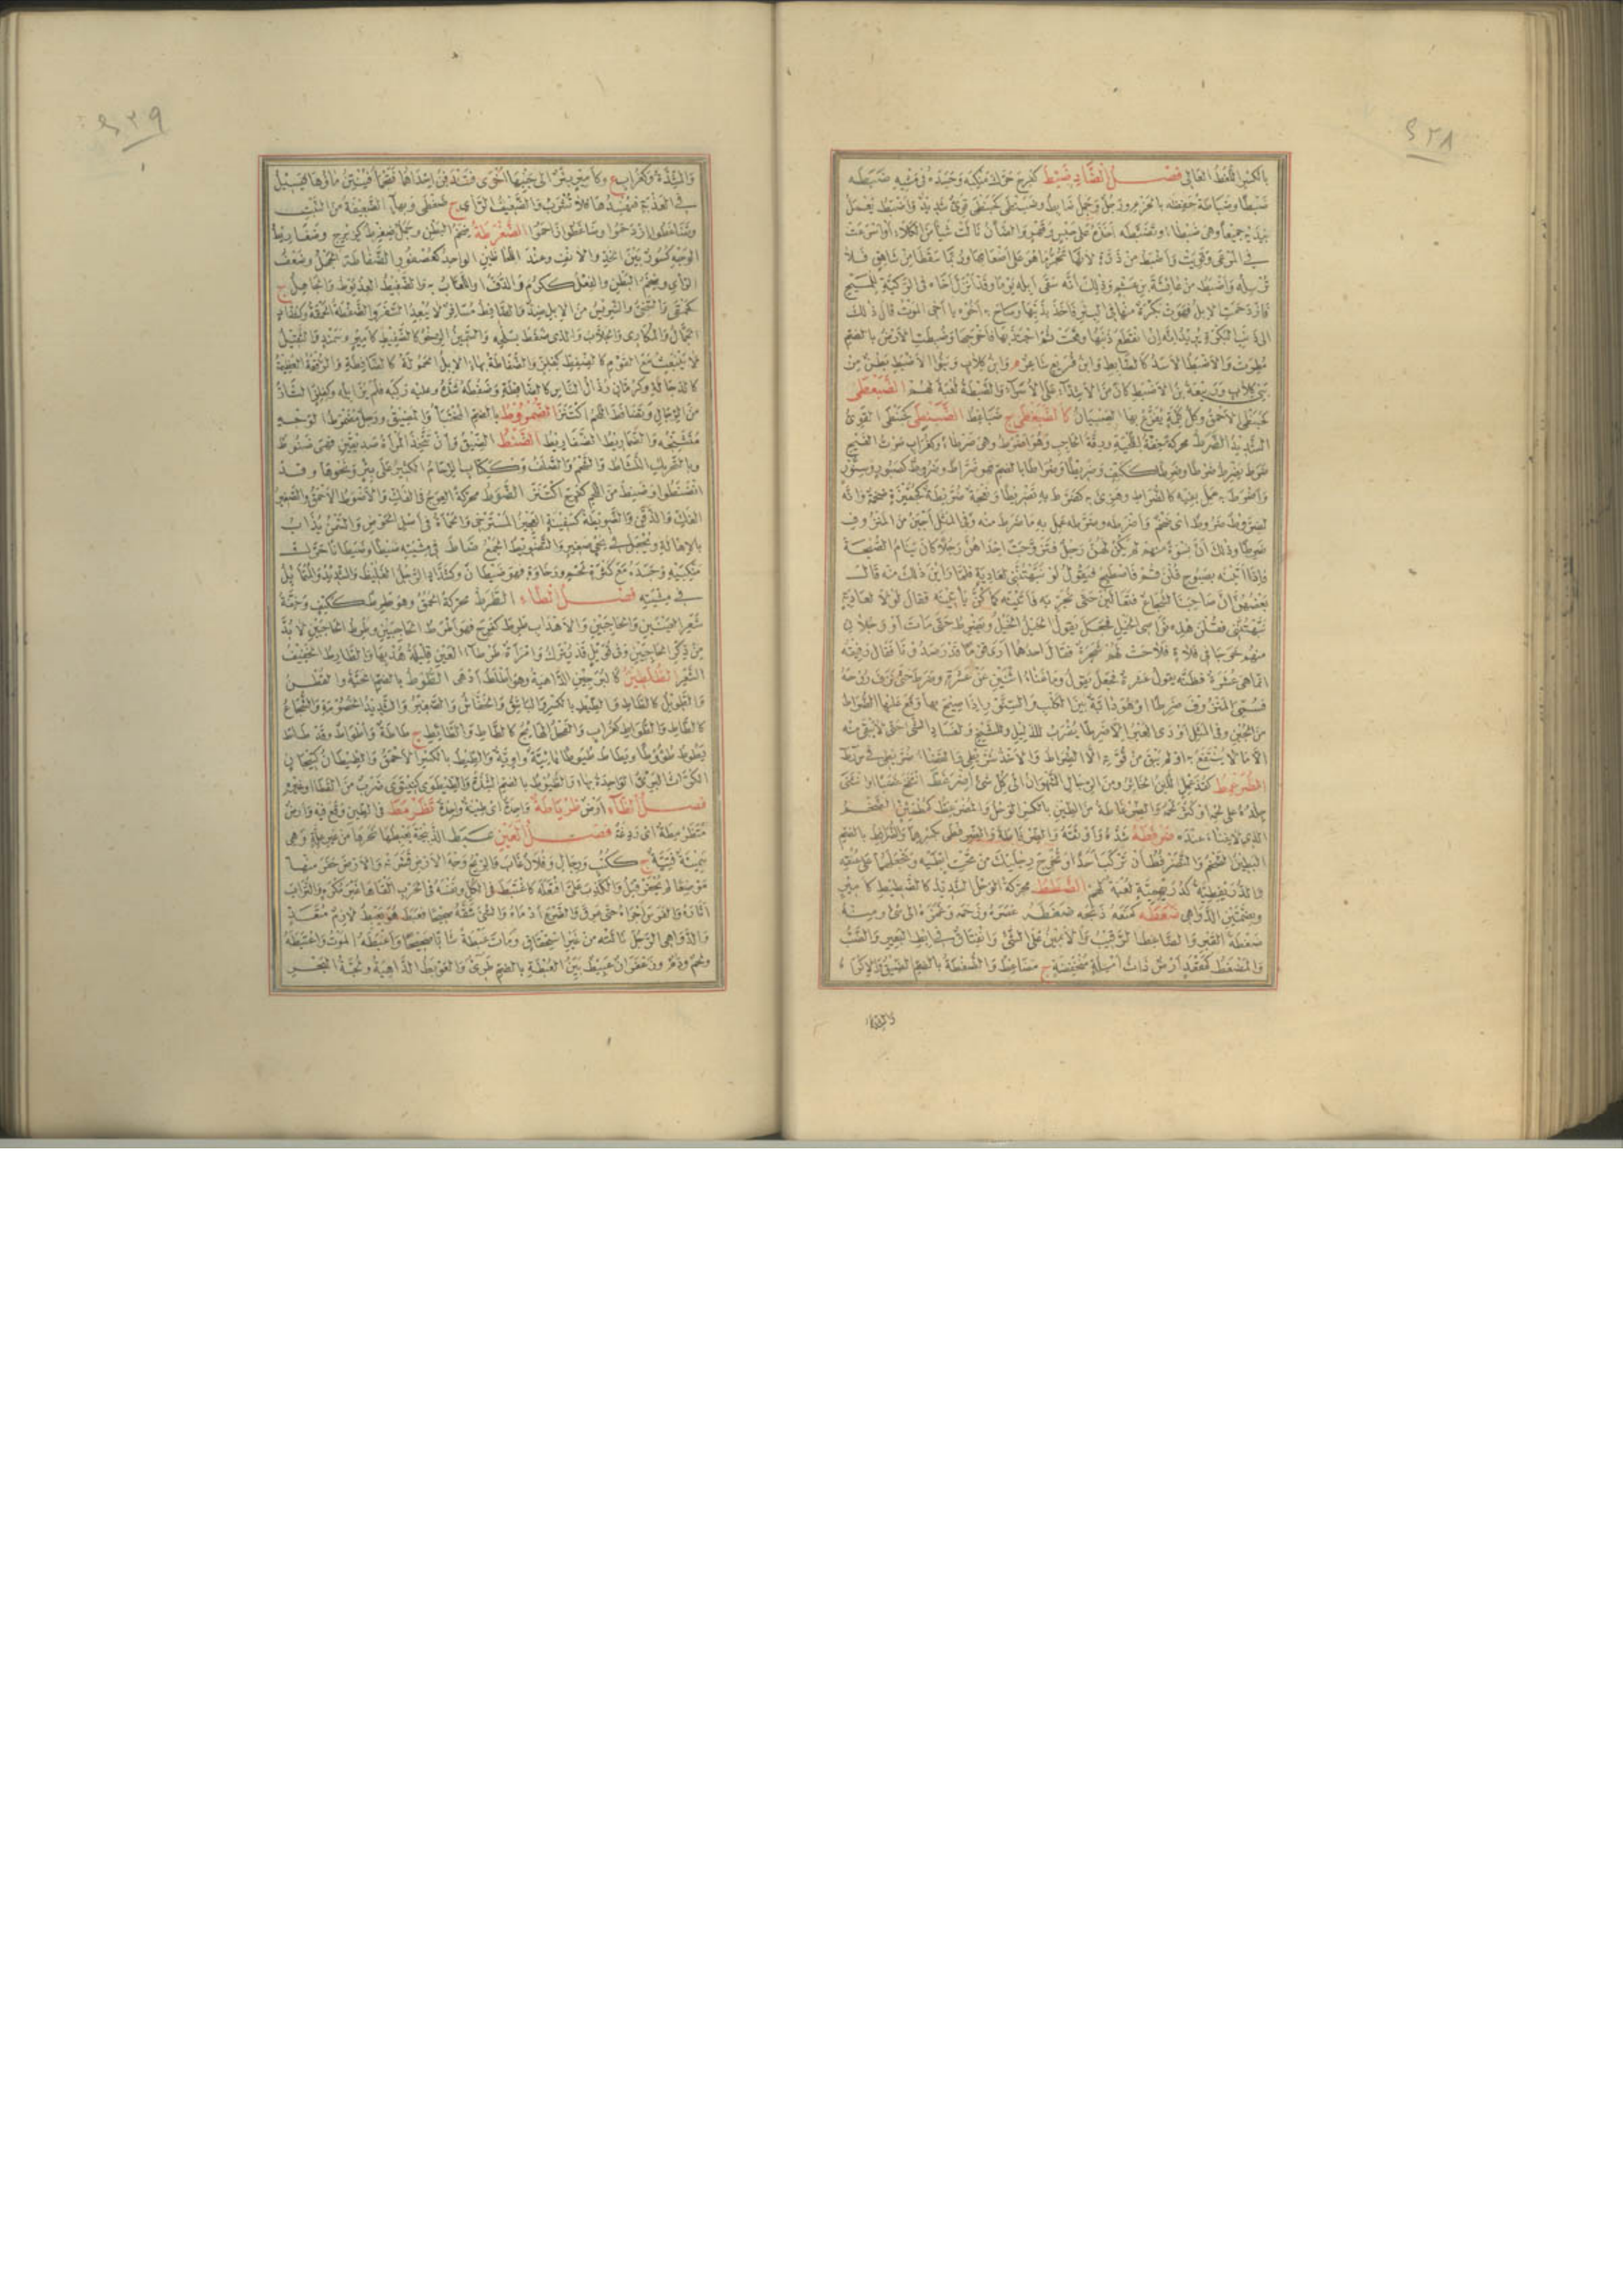 ٤٢٨
بالكسر اللغط العالى فصل الضاد ضبط
ضبطا وضباطة حفظه بالحزم ورجل وجمل ضابط وضبنطى كحبنطى قوى شديد والاضبط يعمل
بيديه جميعا وهى ضبطاء وتضبطه اخذه على حبس وقهر والضان نالت شيأ من الكلاء او اسرعت
فى المرعى وقويت واضبط من ذرة لانها تجر ما هو على اضعافها وربما سقطا من شاهق فلا
ترسله واضبط من عائشة بن عثم وذلك انه سقى ابله يوما وقد انزل اخاه فى الركية للميح
فازدحمت الابل فهوت بكرة منها فى البئر فاخذ بذنبها وصاح به اخوه يا اخى الموت قال ذلك
الى ذنب البكرة يريد انه ان انقطع ذنبها وقعت ثم اجتذبها فاخرجها وضبطت الارض بالضم
مطرت والاضبط الاسد كالضابط وابن قريع شاعر وابن كلاب وبنو الاضبط بطن من
بنى كلاب وربيعة بن الاضبط كان من الاشداء على الاسراء والضبطة لعبة لهم الضبعطى
كحبنطى الاحمق وكل كلمة يفزع بها الصبيان كالضبغطى ج ضباغط الضبنطى كحبنطى القوى
الشديد الضرط محركة خفة اللحية ورقة الحاجب وهو اضرط وهى ضرطاء وكغراب صوت الفيخ
ضرط يضرط ضرطا وضرطا ككتف وضريطا وضراطا بالضم فهو ضراط وضروط كصبور وسنور
واضرط به عمل بفيه كالضراط وهزئ به كضرط به تضريطا ونعجة ضريطة كجميزة ضخمة وانه
لضروط ضروط اى ضخم واضرطه وضرطه عمل به ما ضرط منه وفى المثل اجبن من المنزوف
ضرطا وذلك ان نسوة منهم لم يكن لهن رجل فتزوجت احداهن رجلا كان ينام الصبحة
فاذا اتينه بصبوح قلن قم فاصطبح فيقول لو نبهتننى لعادية فلما راين ذلك منه قال
بعضهن ان صاحبنا لشجاع فتعالين حتى نجربه فاتينه كما كن ياتينه فقال لولا لعادية
نبهتننى فقلن هذه نواصى الخيل فجعل يقول الخيل الخيل ويضرط حتى مات او رجلان
منهم خرجا فى فلاة فلاحت لهم شجرة فقال احدهما ارى قوما قد رصدونا فقال رفيقه
انما هى عشرة فظنه يقول عشرة فجعل يقول وما غناء اثنين عن عشرة وضرط حتى نزف روحه
فسمى المنزوف ضرطا او هو دابة بين الكلب والسنور اذا صيح بها وقع عليها الضراط
من الجبن وفى المثل اودى العير الا ضرطا يضرب للذليل وللشيخ ولفساد الشئ حتى لا يبقى منه
الا ما لا ينتفع به اى لم يبق من قوته الا الضراط والاخذ سريطى والقضاء ضريطى فى سرط
الضرعمط كقذعمل اللبن الخاثر ومن الرجال الشهوان الى كل شئ اضرغط انتفخ غضبا او انثنى
جلده على لحمه او كثر لحمه والضرغاطة من الطين بالكسر الوحل والمضرغط كمطمئن الضخم
الذى لا غناء عنده ضرفطه شده واوثقه والضرفاطة والضرفطى بكسرهما والضرافط بالضم
البطين الضخم والتضرفط ان تركب احدا وتخرج رجليك من تحت ابطيه وتجعلهما على عنقه
والضريفطية كدريهمية لعبة لهم الضطط محركة الرجل الشديد كالضطيط كامير
وبضمتين الدواهى ضغطه كمنعه ذبحه ضغطه عصره وزحمه وغمزه الى شئ ومنه
ضغطة القبر والضاغط الرقيب والامين على الشئ وانفتاق فى ابط البعير والضب
والمضغط كمقعد ارض ذات امسلة منخفضة ج مضاغط والضغطة بالضم الضيق والاكراه
والشدة
٤٢٩
والشدة وكغراب ع وكامير بئر الى جنبها اخرى فتندفن احداهما فتحمأ فينتن ماؤها فيسيل
فى العذبة فيفسدها فلا تشرب والضعيف الراى ج ضغطى وبهاء الضعيفة من النبت
وتضاغطوا ازدحموا وضاغطوا زاحموا الضفرطة ضخم البطن ورجل ضفرط كزبرج وضفاريط
الوجه كسور بين الخد والانف وعند اللحاظين الواحد كعصفور الضفاطة الجهل وضعف
الراى وضخم البطن والفعل ككرم والدف او اللعاب به والضفيط العذيوط والجاهل ج
كحمقى والسخى والشريس من الابل ضد والضافط مسافر لا يبعد السفر والضفطة الحمقة وكشداد
الجمال والمكارى والجلاب والذى ضفط بسلحه والسمين الرخو كالضفيط كامير وسمند والثقيل
لا ينبعث مع القوم كالضفيط كفلز والضفاطة بهاء الابل الحمولة كالضافطة والرفقة العظيمة
كالدجالة وكرمان رذال الناس كالضافطة وضفطه شده وعليه ركبه فلم يزايله وكفلز الشاذ
من الرجال وتضافط اللحم اكتنز الضمروط بالضم المختبأ والمضيق ورجل مضمرط الوجه
متشنجه والضماريط الضفاريط الضنط الضيق وان تتخذ المرأة صديقين فهى ضنوط
وبالتحريك النشاط والشحم والصلف وككتاب الزحام الكثير على بئر ونحوها وقد
انضنطوا وضنط من اللحم كفرح اكتنز الضوط محركة العوج فى الفك والاضوط الاحمق والصغير
الفك والذقن والضويطة كسفينة العجين المسترخى والحمأة فى اسفل الحوض والسمن يذاب
بالاهالة ويجعل فى نحى صغير والتضويط الجمع ضاط فى مشيته ضيطا وضيطانا حرك
منكبيه وجسده مع كثرة لحم ورخاوة فهو ضيطان وكشداد الرجل الغليظ والشديد والمتمايل
فى مشيته فصل الطاء الطرط محركة الحمق وهو طرط ككتف وخفة
شعر العينين والحاجبين والاهداب طرط كفرح فهو اطرط الحاجبين وطرط الحاجبين لا بد
من ذكر الحاجبين وفى قويل قد يترك وامرأة طرطاء العين قليلة هدبها والطارط الخفيف
الشعر الطلطين كالبرحين الداهية وهو اطلط ادهى الطوط بالضم الحية والقطن
والطويل كالطاط والطيط بالكسر والباشق والخفاش والصغير والشديد الخصومة والشجاع
كالطاط والطواط كغراب والفحل الهائج كالطاط والطائط ج طاطة واطواط وقد طاط
يطوط طؤوطا ويطاط طيوطا يائية واوية والطيط بالكسر الاحمق والطيطان كتيجان
الكراث البرى الواحدة بهاء والطيوط بالضم الشدة والطيطوى كنينوى ضرب من القطا او غيره
فصل الظاء ارض ظرياطة واحدة اى طينة واحدة تظرمط فى الطين وقع فيه وارض
متظرمطة اى ردغة فصل العين عبط الذبيحة يعبطها نحرها من غير علة وهى
سمينة فتية ج ككتب ورجال وفلان غاب والريح وجه الارض قشرته والارض حفر منها
موضعا لم يحفر قبل والكذب على افتعله كاعتبط فى الكل ونفسه فى الحرب القاها غير مكره والتراب
اثاره والفرس اجراه حتى عرق والضرع ادماه والشئ شقه صحيحا فعبط هو يعبط لازم متعد
والدواهى الرجل نالته من غير استحقاق ومات عبطة شابا صحيحا واعبطه الموت واعتبطه
ولحم ودم وزعفران عبيط بين العبطة بالضم طرى والعوبط الداهية ولجة البحر